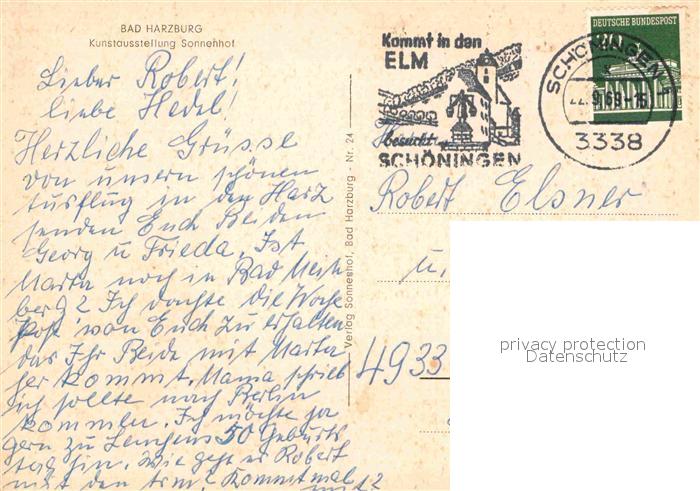 BAD HARZBURG
Kunstausstellung Sonnenhof
Lieber Robert!
liebe Hedel!
Herzliche Grüsse
von unsern schönen
Ausflug in den Harz
senden Euch Beiden
Georg u Frieda. Ist
Marta noch in Bad Mein
berg? Ich dachte die Woche
Post von Euch zu erhalten
das Ihr Beide mit Marta
her kommt. Mama schrieb
ich sollte nach Berlin
kommen. Ich möchte ja
gern zu 50 Geburts
tag hin. Wie geht es Robert
mit den Arm? Kommt mal
Verlag Sonnenhof, Bad Harzburg - Nr. 24
Kommt in den
ELM
besucht
SCHÖNINGEN
DEUTSCHE BUNDESPOST
SCHÖNINGEN 1
3338
Robert Elsner
u.
4933
privacy protection
Datenschutz